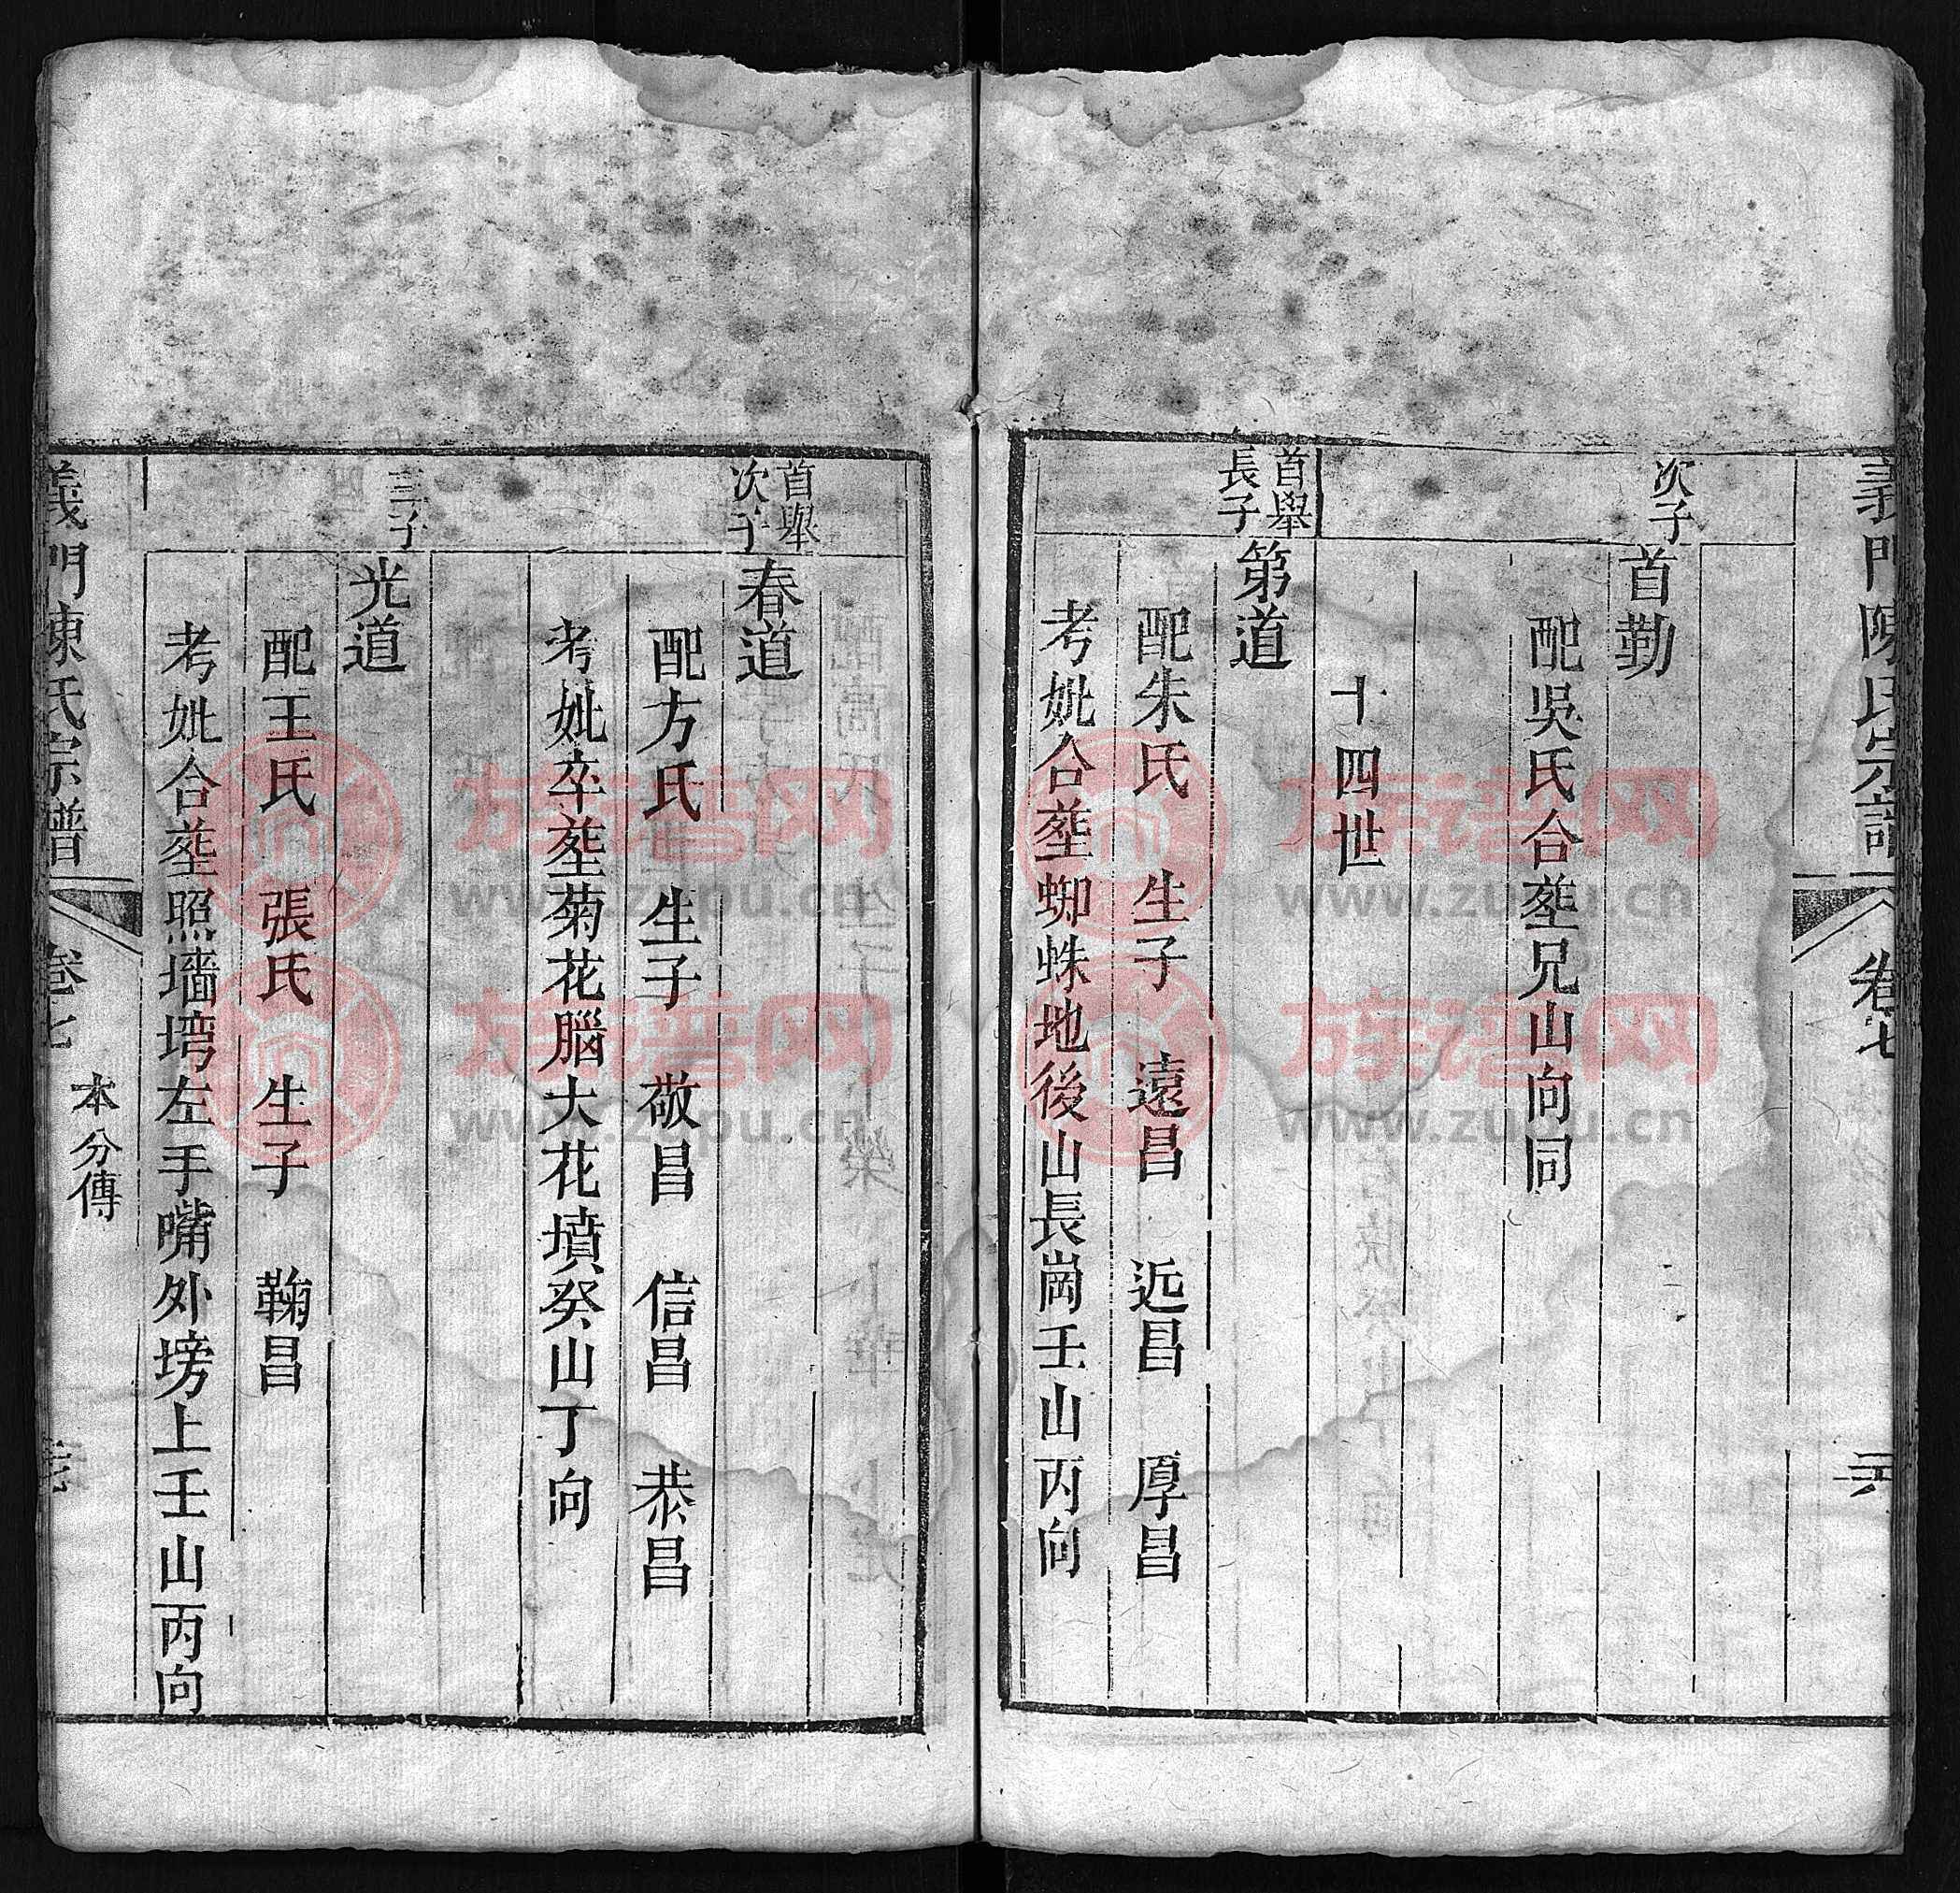 義門陳氏宗譜
卷七
次子
首勤
配吳氏合塟兄山向同
十四世
首舉
長子
第道
配朱氏 生子 遠昌 近昌 厚昌
考妣合塟蜘蛛地後山長崗壬山丙向
首舉
次子
春道
配方氏 生子 敬昌 信昌 恭昌
考妣卒塟菊花腦大花墳癸山丁向
三子
光道
配王氏 張氏 生子 鞠昌
考妣合塟照墻塆左手嘴外塝上壬山丙向
義門陳氏宗譜
卷七
本分傳
族谱网
www.zupu.cn
族谱网
www.zupu.cn
族谱网
www.zupu.cn
族谱网
www.zupu.cn